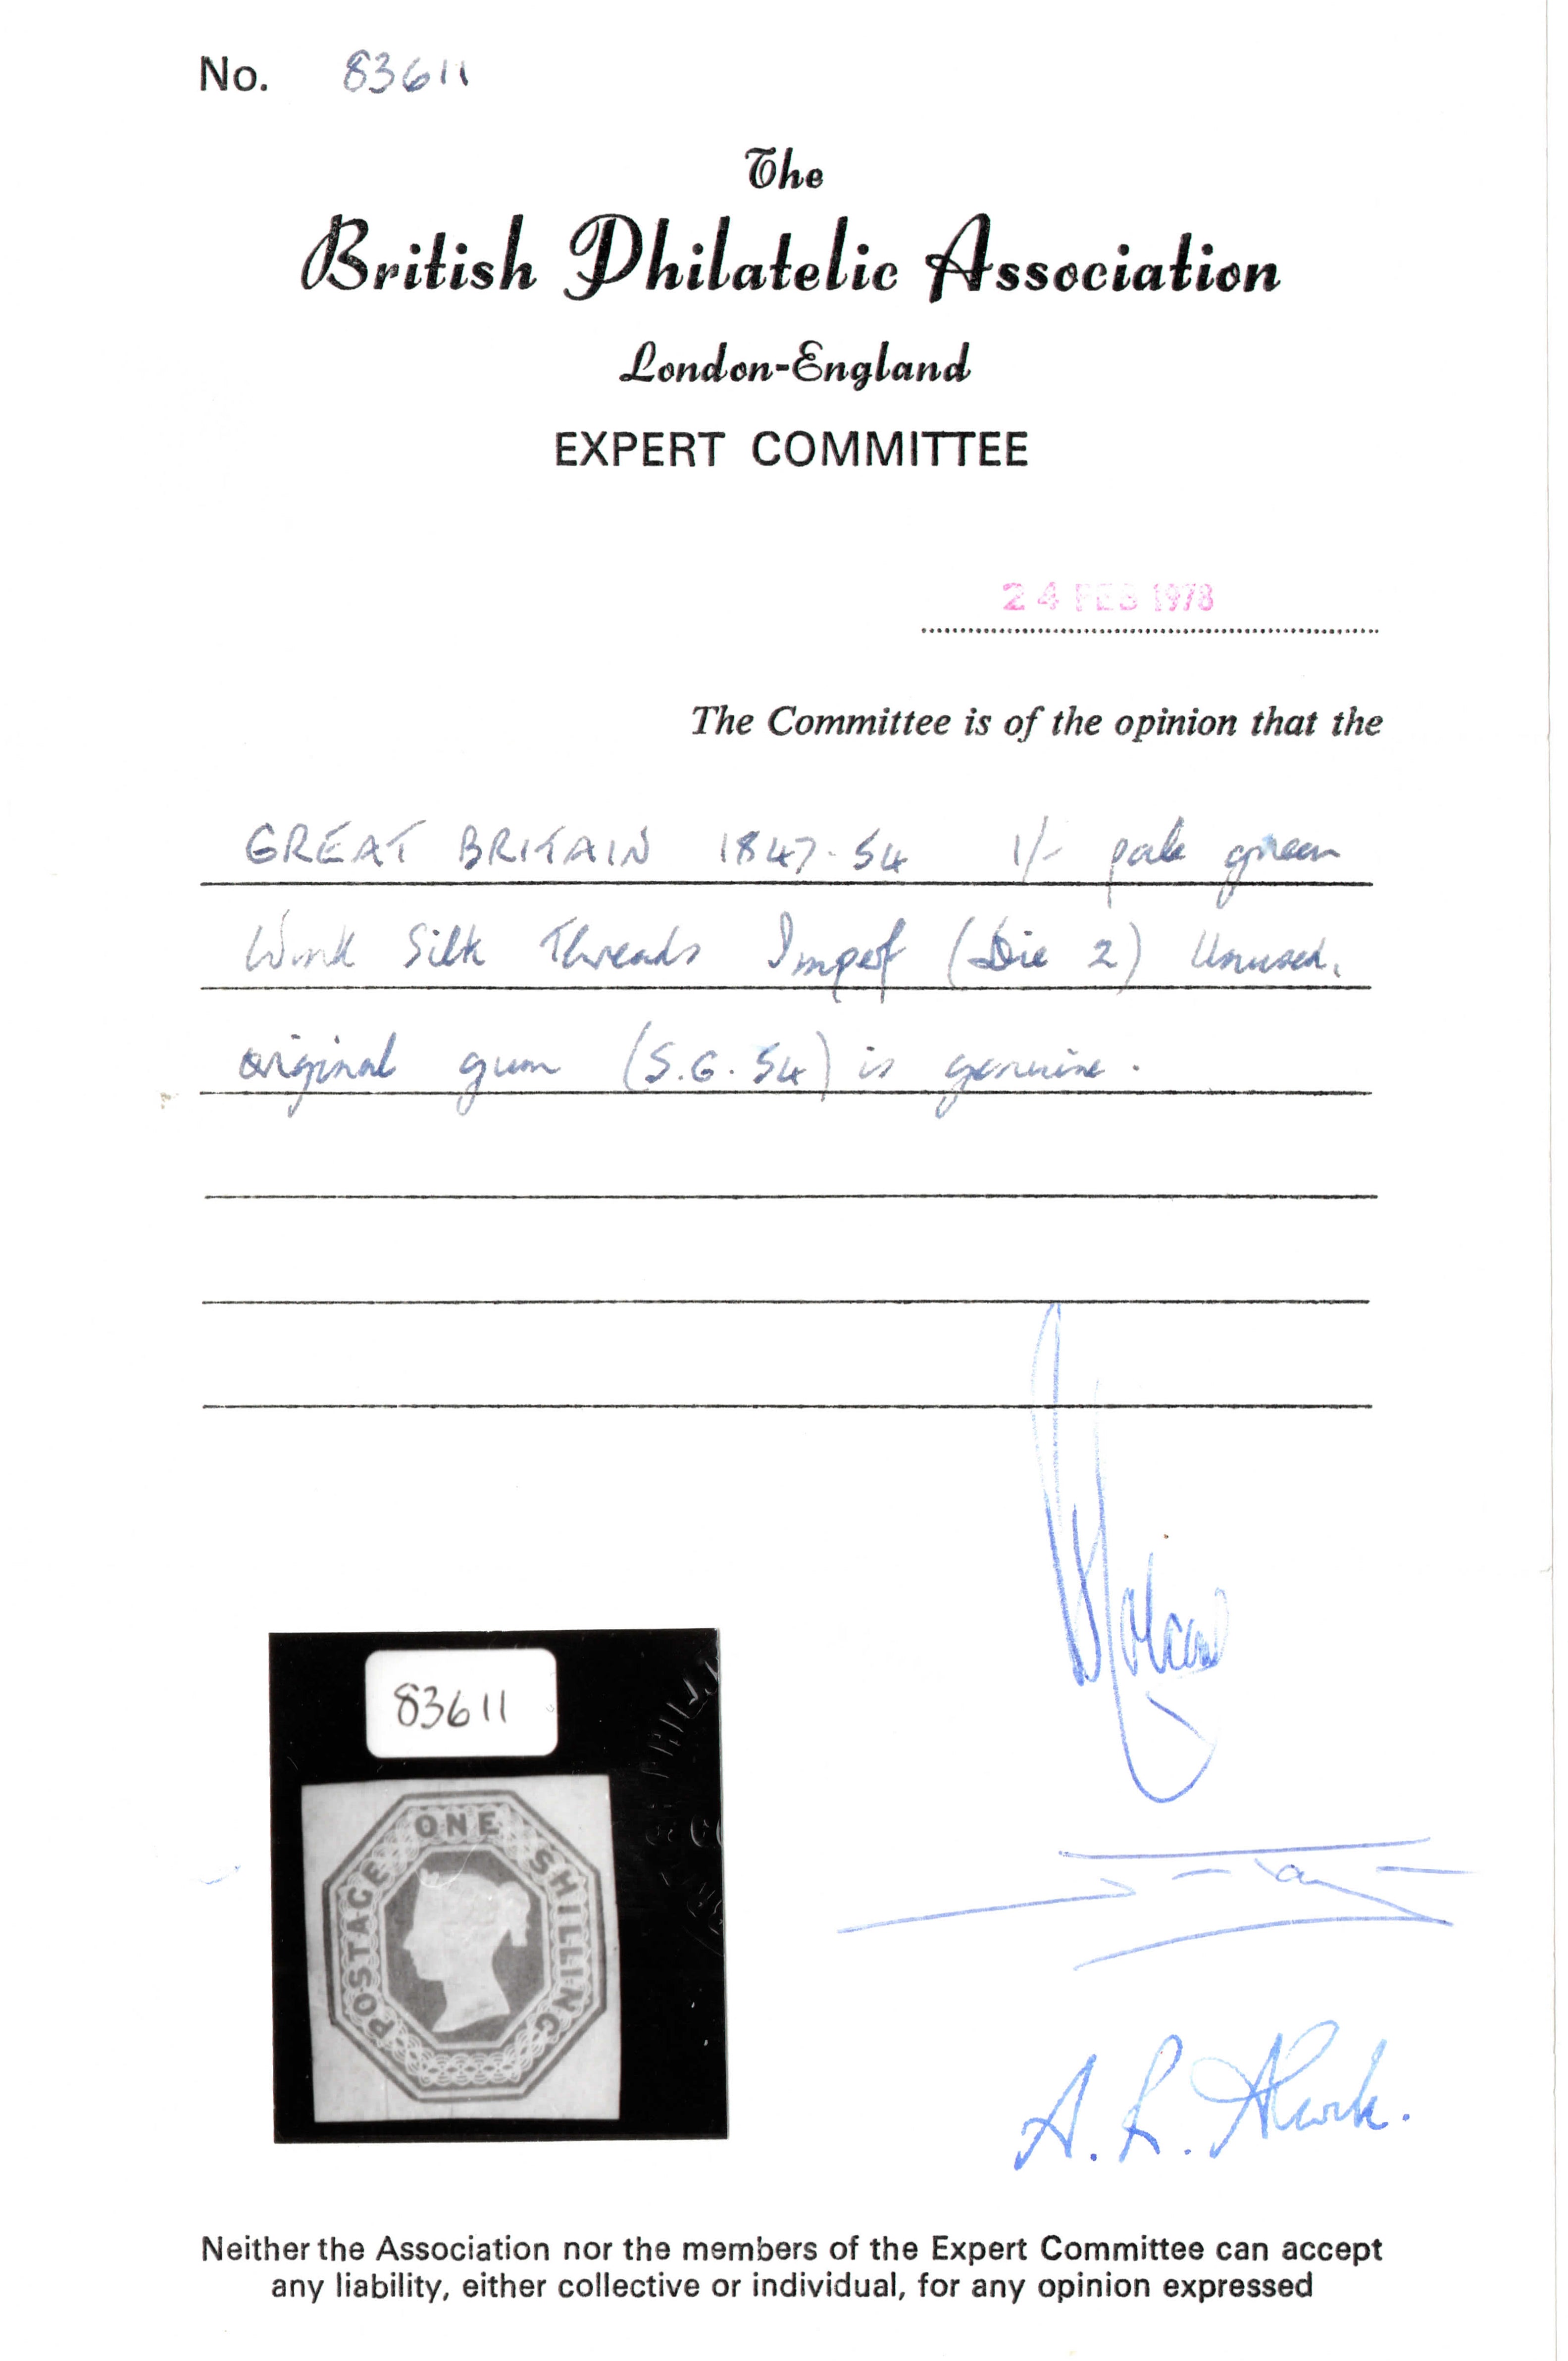 No. 83611
The
British Philatelic Association
London-England
EXPERT COMMITTEE
24 FEB 1978
The Committee is of the opinion that the
GREAT BRITAIN 1847-54 1/- pale green
Wmk Silk Threads Imperf (Die 2) Unused,
original gum (S.G. 54) is genuine.
83611
ONE SHILLING
POSTAGE
A. R.
Neither the Association nor the members of the Expert Committee can accept
any liability, either collective or individual, for any opinion expressed